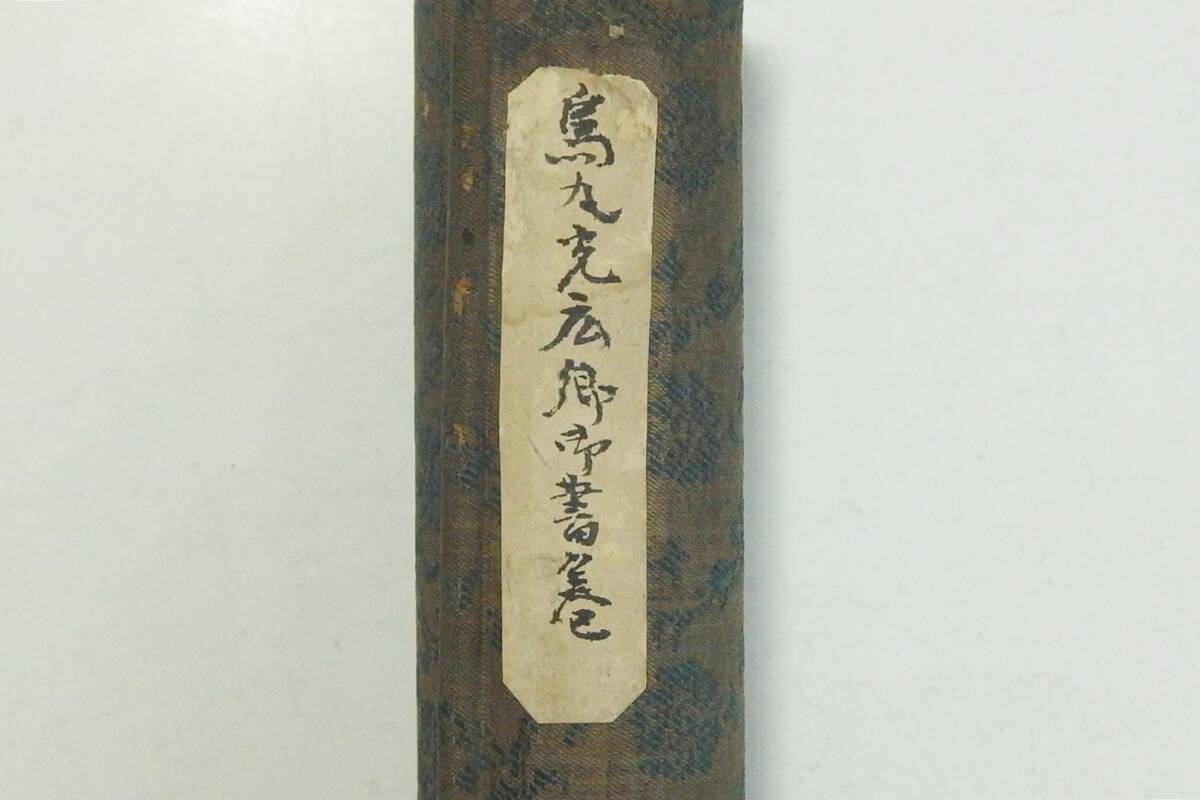 烏丸光広卿御書巻